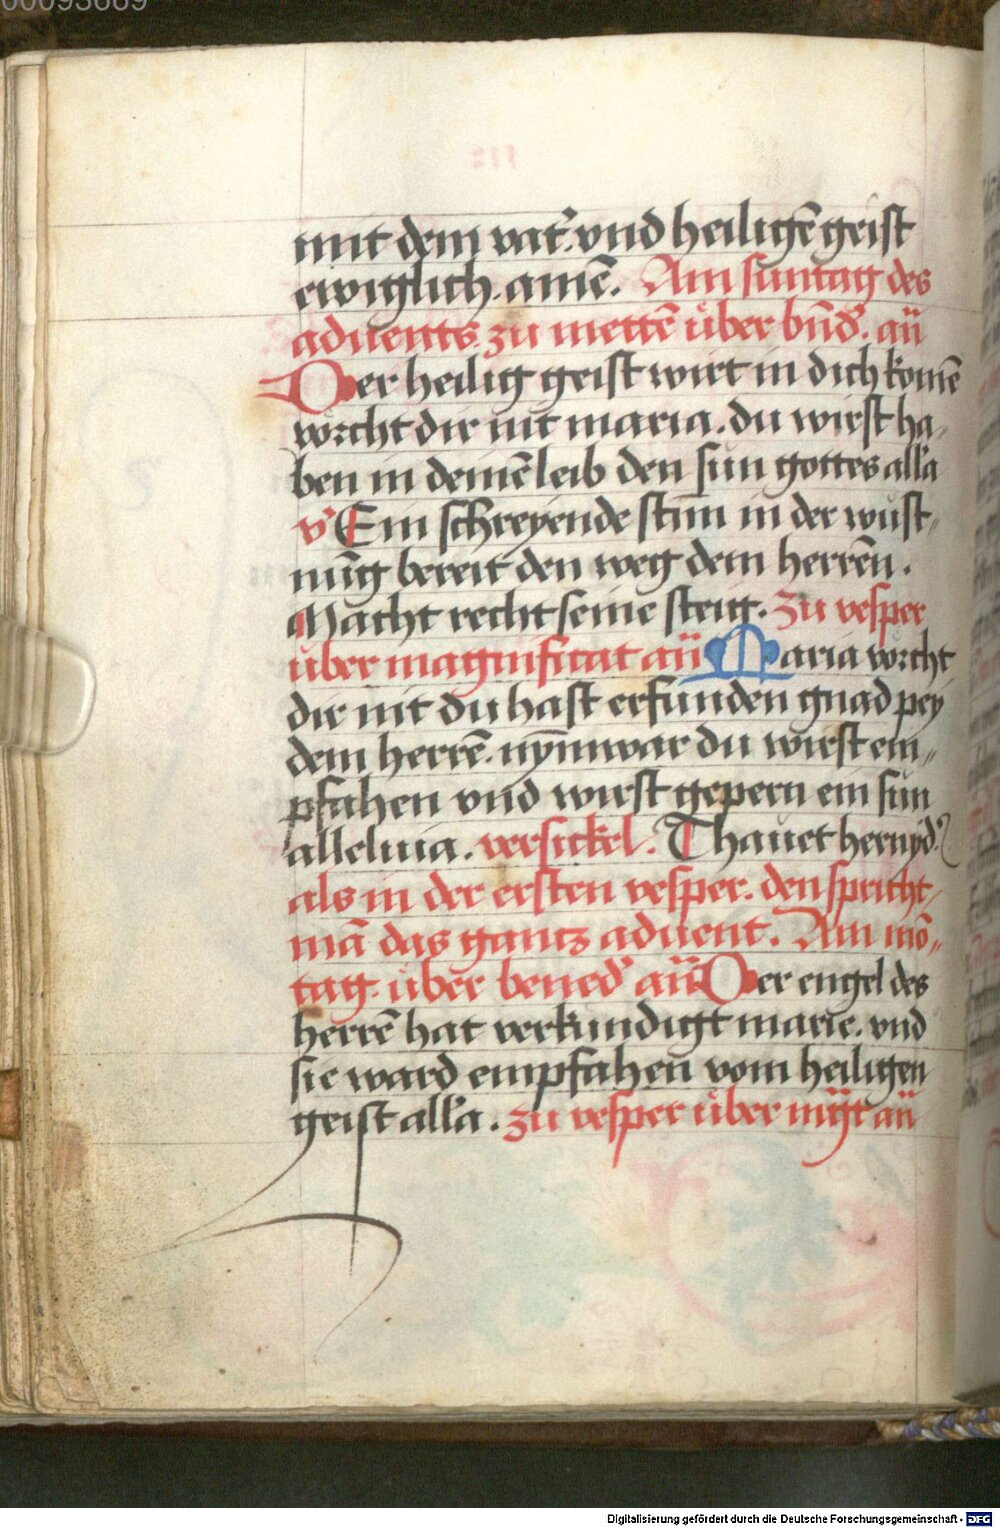 00093669
mit dem vat᷑. vnd heiligē geist
ewiglich. amē. Am suntag des
aduents. zu mettē über bn̄d᷑. añ
Der heilig geist wirt in dich komē
vörcht dir nit maria. du wirst ha-
ben in deinē leib den sun gottes all'a
v᷑ Ein schreyende stim in der wüst-
nūg bereit den weg dem herrēn.
Macht recht seine steig. zu vesper
über magnificat añ Maria vörcht
dir nit du hast erfunden gnad pey
dem herrē. nÿmwar du wirst em-
pfahen vnd wirst gepern ein sun
alleluia. versickel. Thauet hernyd᷑
als in der ersten vesper. den spricht
mā das gantz aduent. Am mō-
tag. über bened᷑ añ Der engel des
herrē hat verkundigt marie. vnd
sie ward empfahen vom heiligen
geist all'a. zu vesper über mgt añ
Digitalisierung gefördert durch die Deutsche Forschungsgemeinschaft - DFG